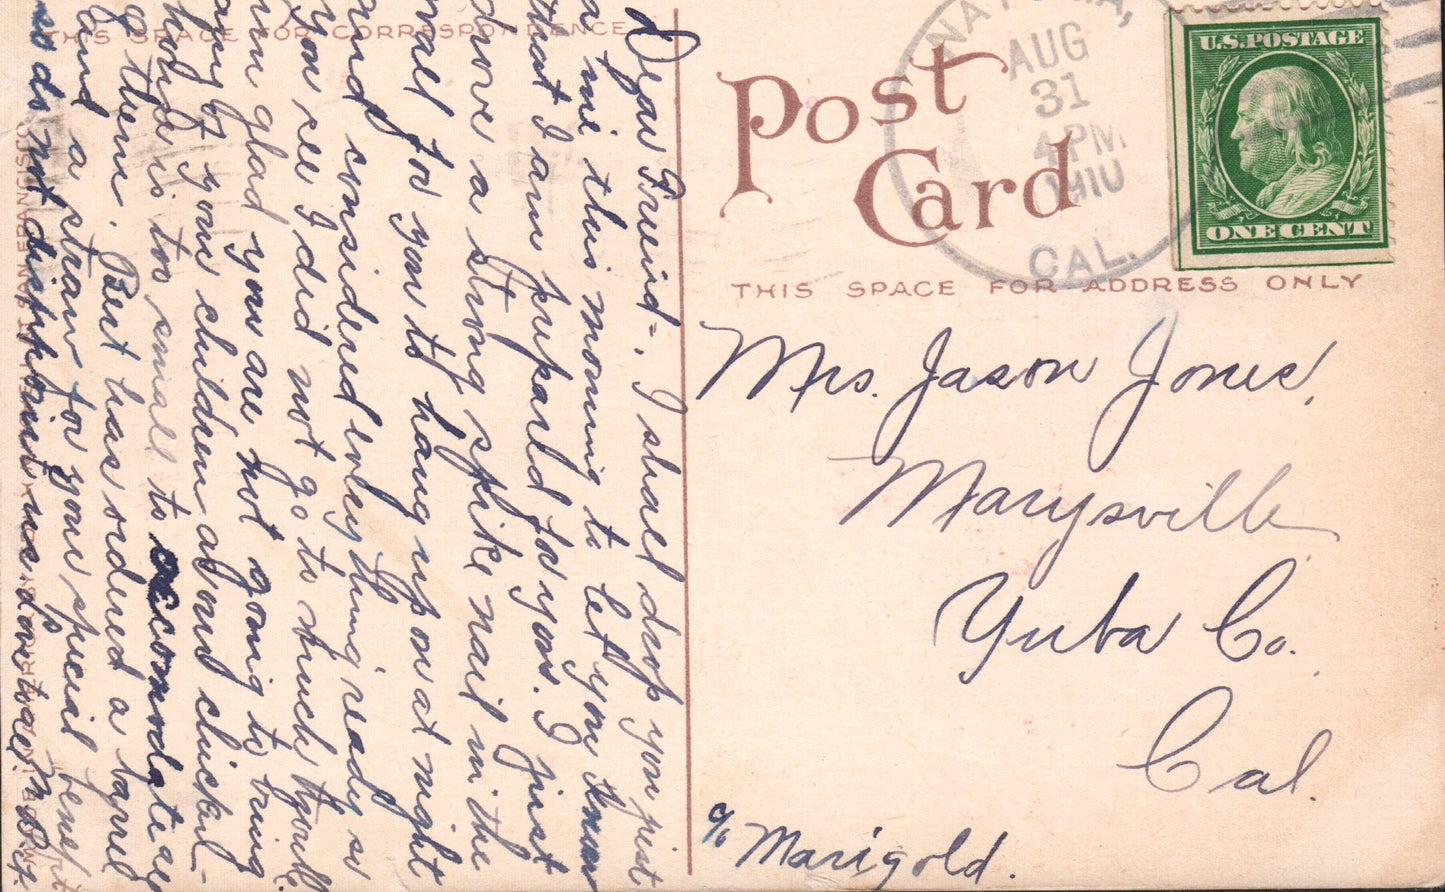 THIS SPACE FOR CORRESPONDENCE
Post
Card
THIS SPACE FOR ADDRESS ONLY
U.S. POSTAGE
ONE CENT
AUG
31
4 PM
1910
CAL.
Mrs. Jason Jones,
Marysville
Yuba Co.
Cal.
c/o Marigold.
Dear Friend-, I shall drop you just
a me this morning to let you know
that I am prepared for you. I just
drove a strong spike nail in the
wall for you to hang upon at night
and considered everything ready so
you see I did not go to much trouble
am glad you are not going to bring
any of your children as our chicken
house is too small to accomodate all
of them. Bert has ordered a barrel
and a straw for your special benefit
so do not disappoint us